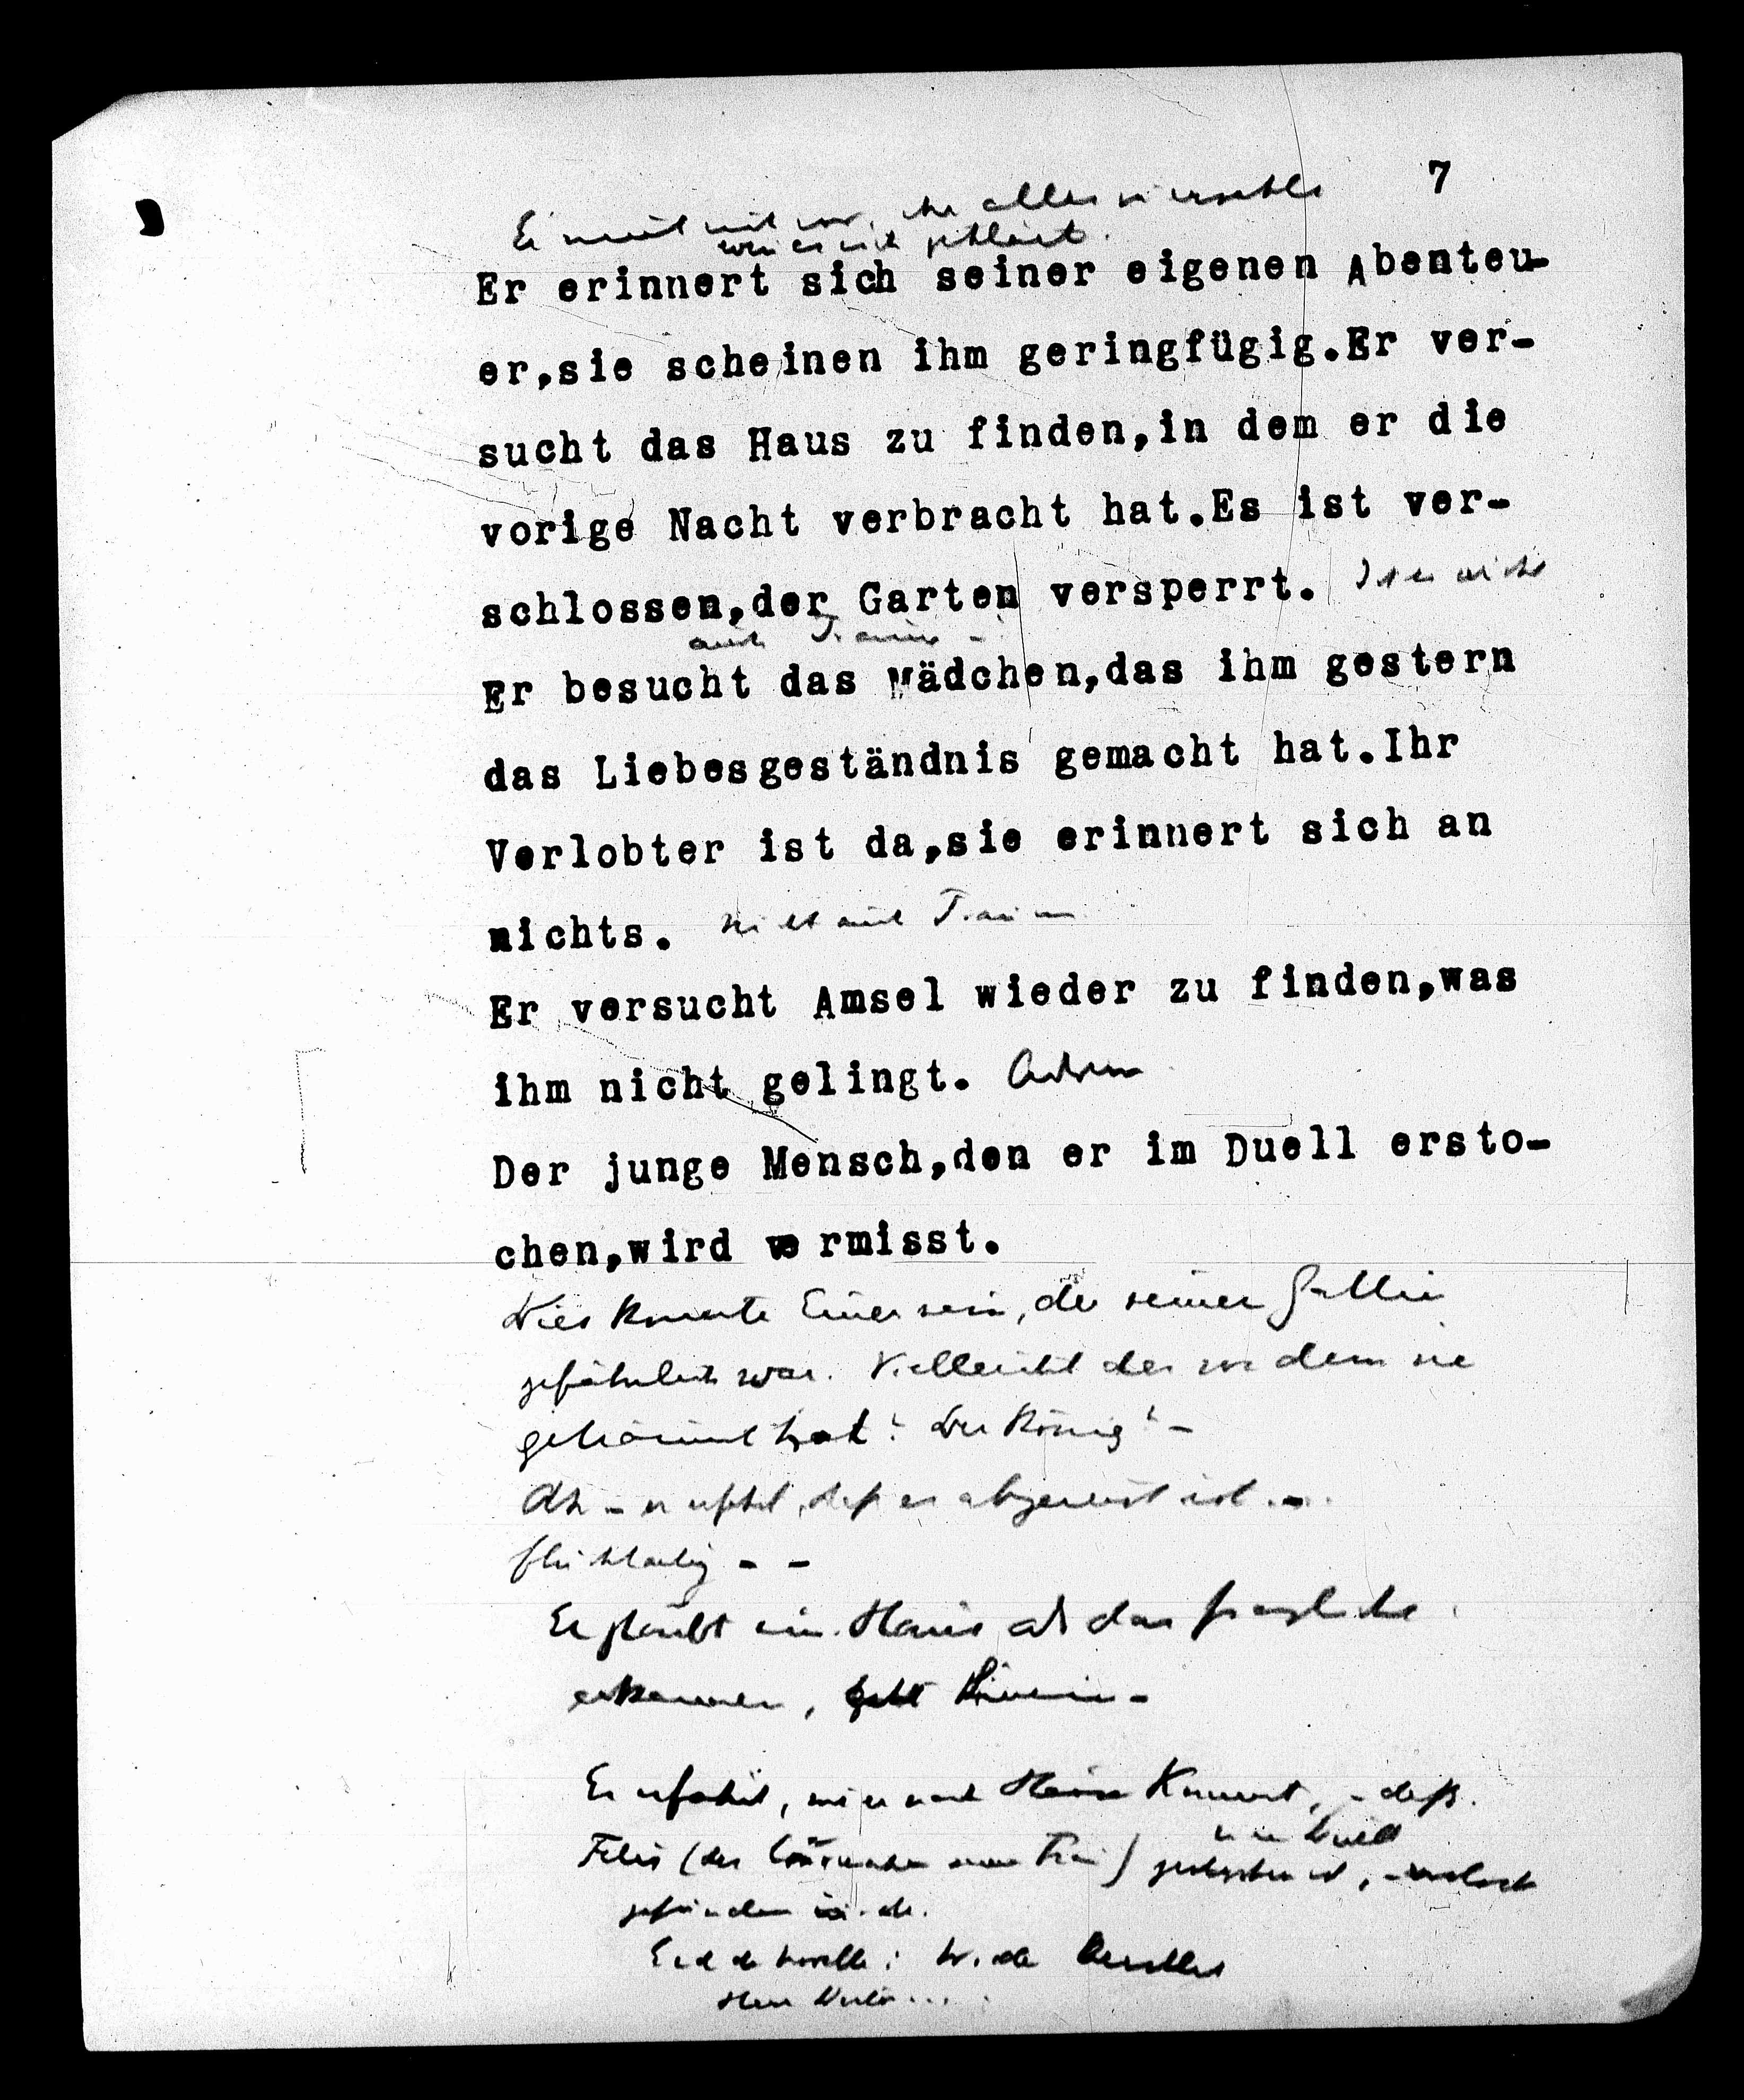 7
Er nimmt sich vor, ihr alles zu erzählen
wenn es sich geklärt.
Er erinnert sich seiner eigenen Abenteu-
er,sie scheinen ihm geringfügig.Er ver-
sucht das Haus zu finden,in dem er die
vorige Nacht verbracht hat.Es ist ver-
schlossen,der Garten versperrt. Ist es nicht
auch Traum -
Er besucht das Mädchen,das ihm gestern
das Liebesgeständnis gemacht hat.Ihr
Verlobter ist da,sie erinnert sich an
nichts. auch Traum
Er versucht Amsel wieder zu finden,was
ihm nicht gelingt.
Der junge Mensch,den er im Duell ersto-
chen,wird vermisst.
Dies konnte Einer sein, der seiner Gattin
gefährlich war. Vielleicht der von dem sie
geträumt hat? Der König? -
Ah - er erfährt, daß er abgereist ist. -
flüchtig - -
Er glaubt ein Haus als das fragliche
erkennen, geht hinein -
Er erfährt, wie er nach Hause kommt, - daß
im Duell
gestorben ist,
gefunden wurde.
Ende der Novelle: